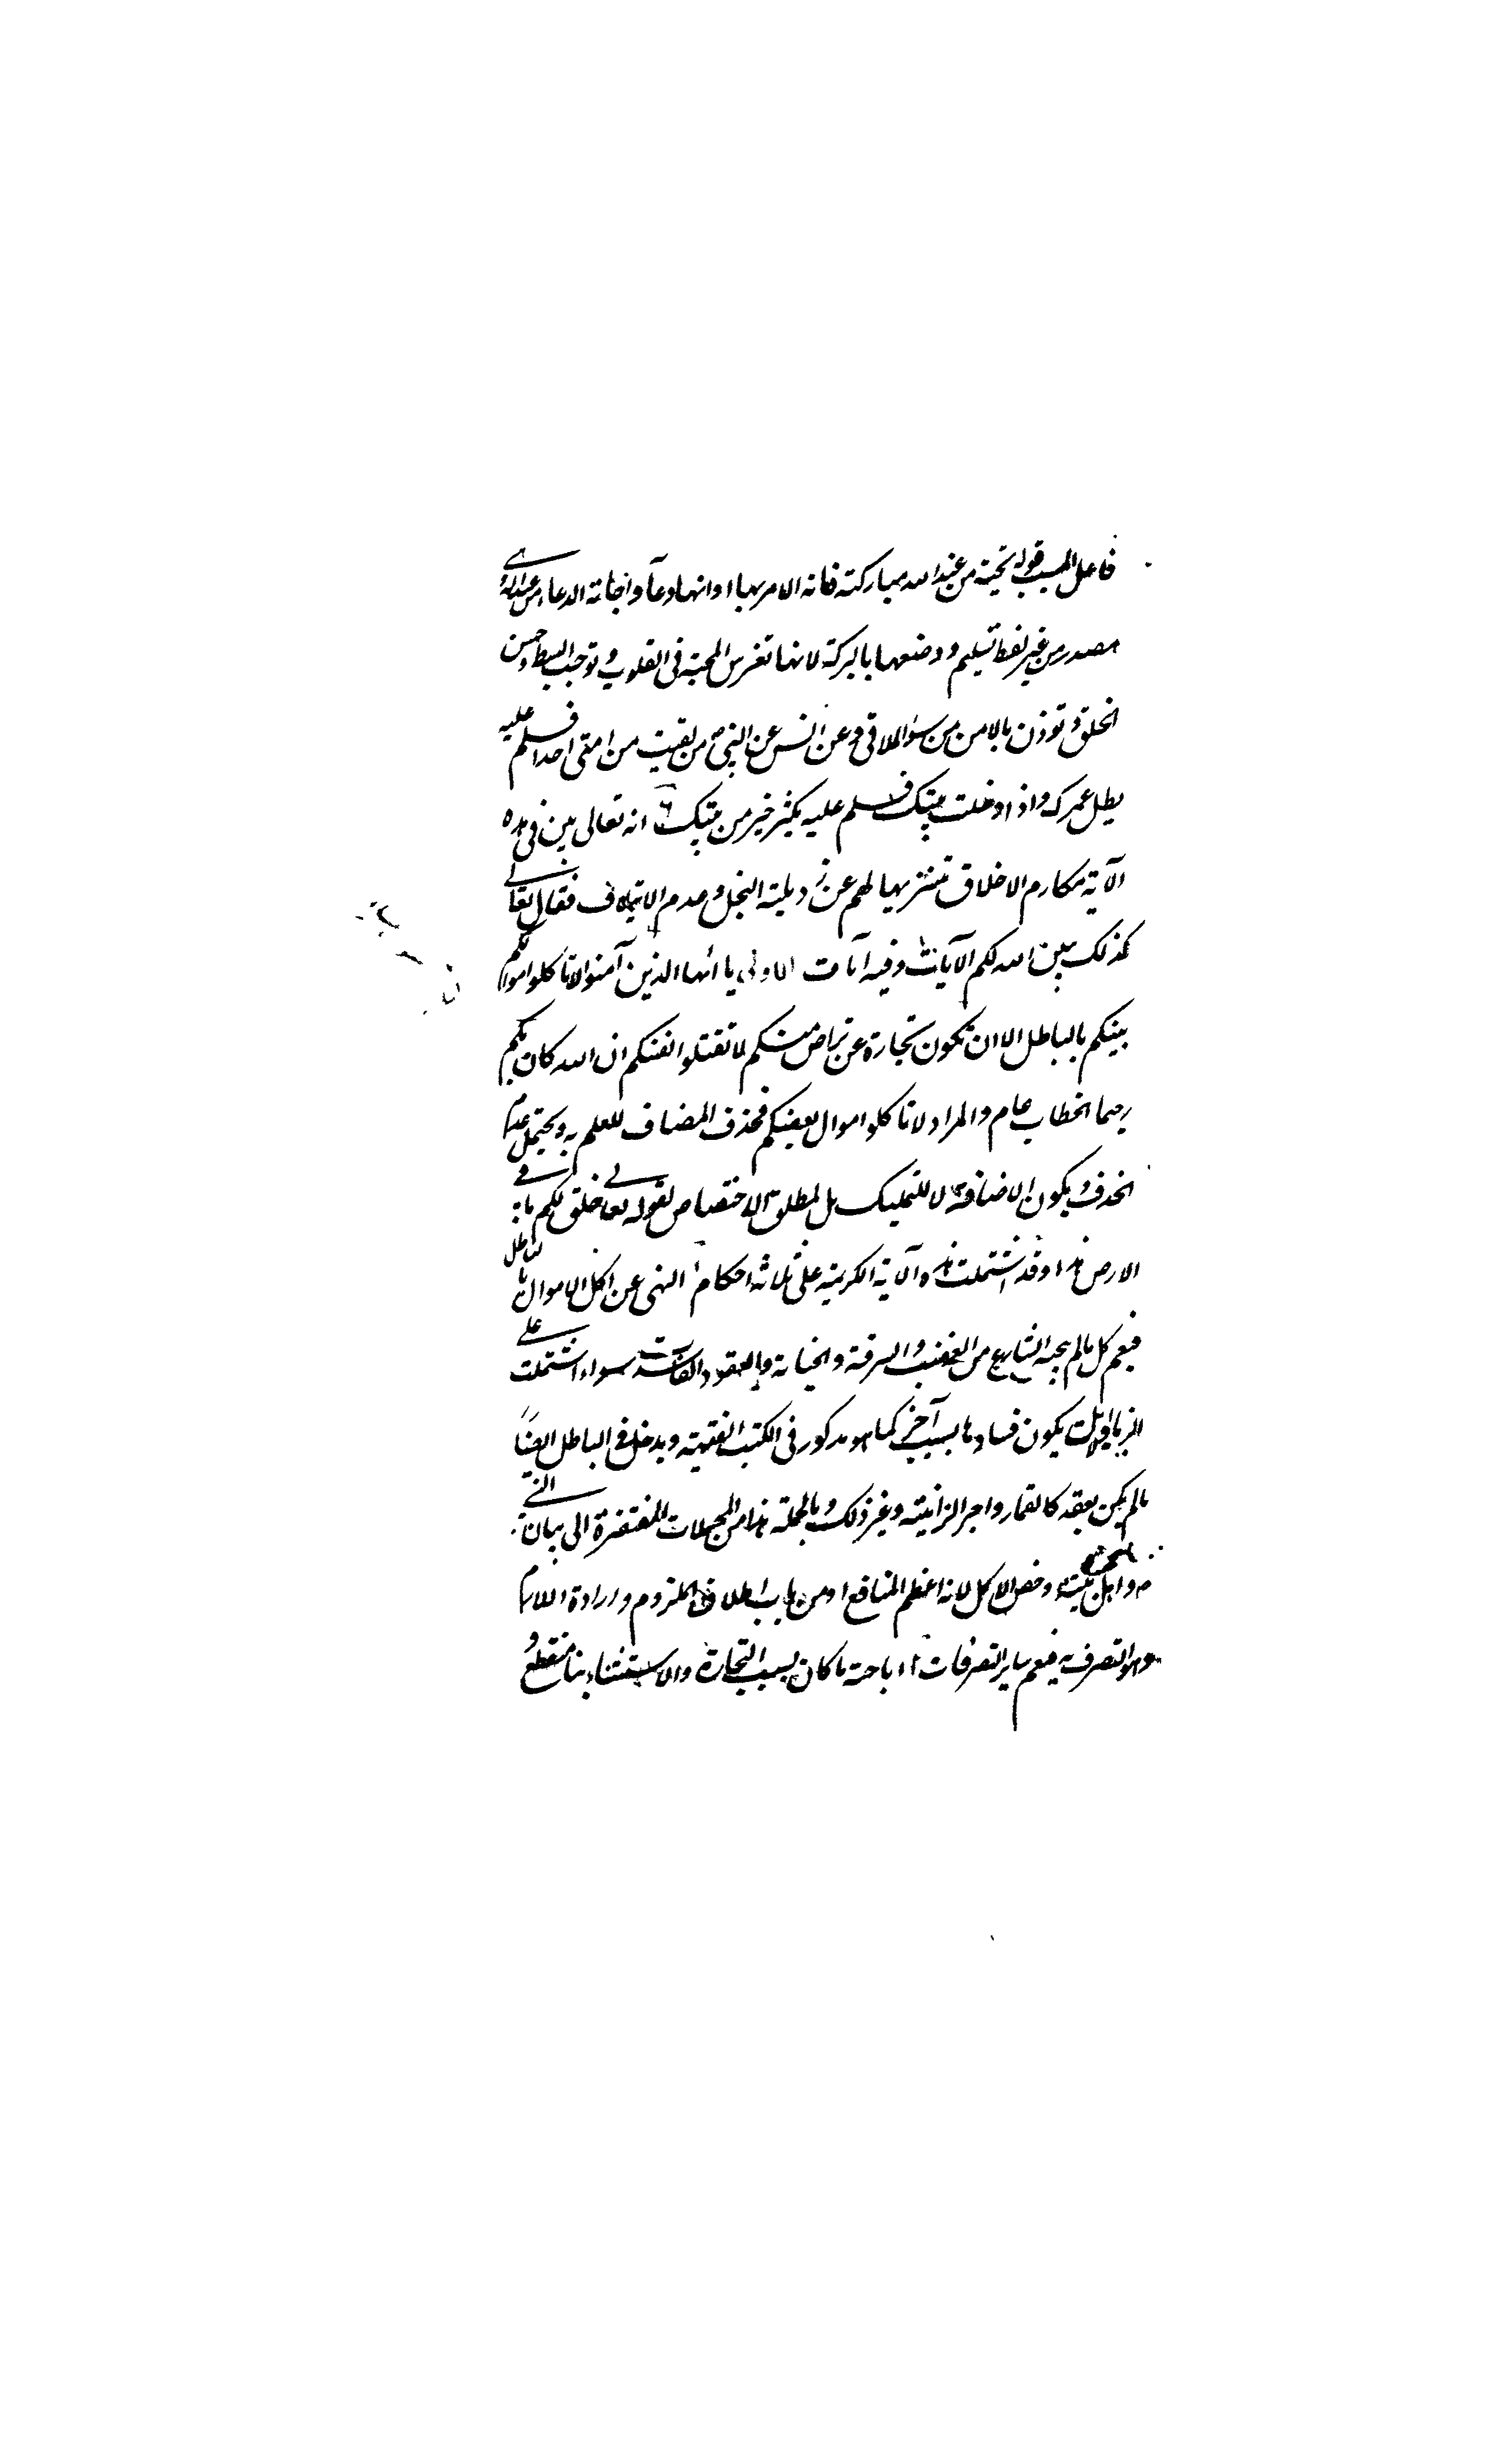 فاعل المسبب قوله تحية من عند الله مباركة فانه الامر بها او انها دعآ واجابة الدعاء من عند الله وهى
مصدر من غير لفظ تسليم ووصفها بالبركة لانها تغرس المحبة فى القلوب وتوجب البسط وحسن
الخلق وتوذن بالامن من سوء الملاقى وعن انس عن النبى ص من لقيت من امتى احدا فسلم عليه
يطل عمرك واذا دخلت بيتك فسلم عليه يكثر خير من بيتك انه تعالى بين فى هذه
الآية مكارم الاخلاق تنزيها لهم عن رذيلة البخل وعدم الايتلاف فقال تعالى
كذلك يبين الله لكم الآيات وفيه آيات الاولى يا ايها الذين آمنوا لا تاكلوا اموالكم
بينكم بالباطل الا ان تكون تجارة عن تراض منكم لا تقتلوا انفسكم ان الله كان بكم
رحيما الخطاب عام والمراد لا تاكلوا اموال بعضكم فحذف المضاف للعلم به ويحتمل عدم
الحذف ويكون الاضافة لا للتمليك بل لمطلق الاختصاص لقوله تعالى خلق لكم ما فى
الارض هذا وقد اشتملت هذه الآية الكريمة على ثلاثة احكام النهى عن اكل الاموال بالباطل
فيعم كل ما لم يبحه الشارع من الغصب والسرقة والخيانة والعقود الفاسدة سواء اشتملت على
الربا او لا بل يكون فسادها بسبب آخر كما هو مذكور فى الكتب الفقهية ويدخل فى الباطل ايضا
ما لم يكن بعقد كالقمار واجر الزانية وغير ذلك وبالجملة هذا من المجملات المفتقرة الى بيان النبى
ص واهل بيته وخص الاكل لانه اعظم المنافع او من باب اطلاق الملزوم وارادة اللازم
وهو التصرف به فيعم ساير التصرفات اباحة ما كان بسبب التجارة والاستثناء هنا منقطع و